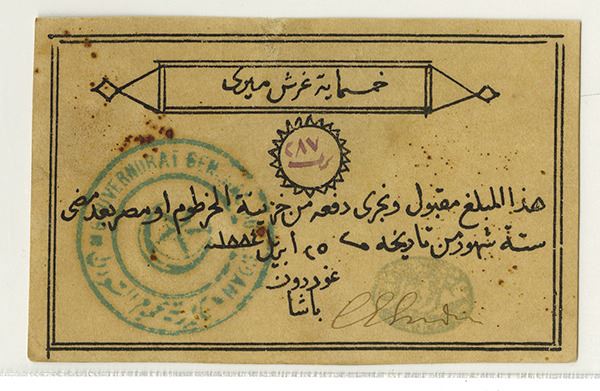 خمسماية غرش ميرى
٢٨٧
هذا المبلغ مقبول ونجرى دفعه من خزينة الخرطوم او مصر بعد مضى
ستة شهور من تاريخه ٢٥ ابريل ١٨٨٤
غوردون
باشا
GOUVERNORAT GEN